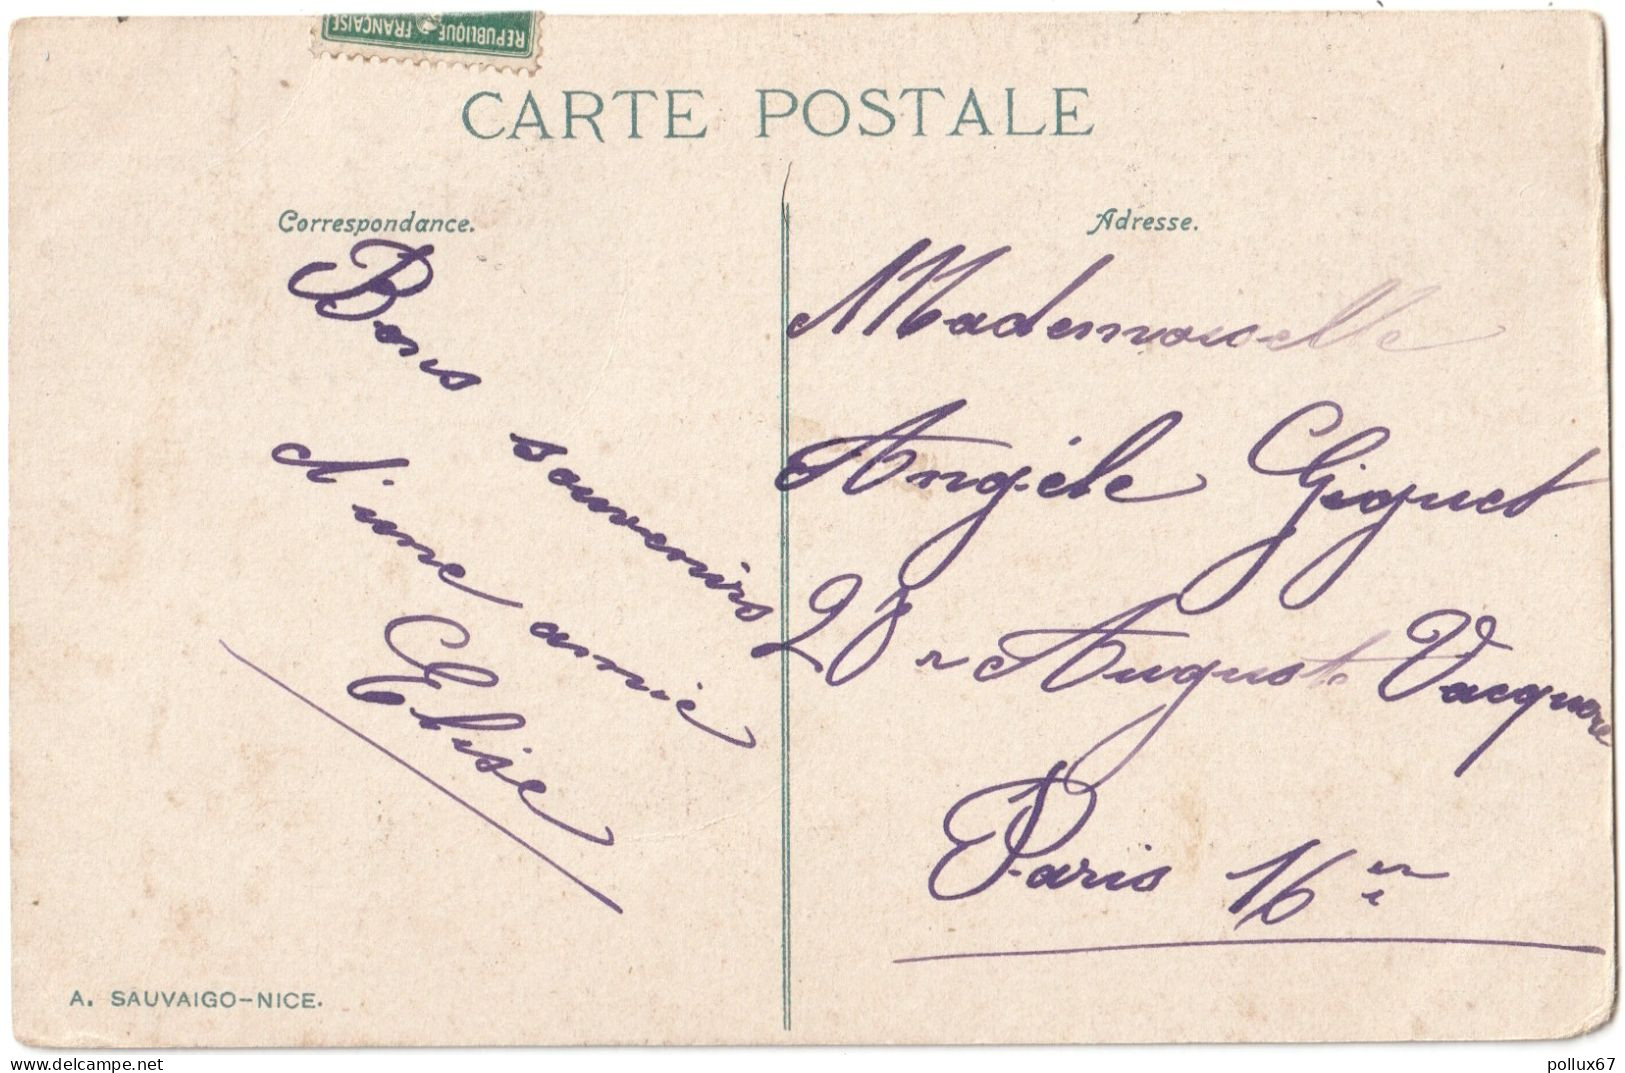 REPUBLIQUE FRANÇAISE
CARTE POSTALE
Correspondance.
Adresse.
Bons souvenirs
d'une amie
Elise
Mademoiselle
Angèle Giguet
28 r Auguste Vacquerie
Paris 16er
A. SAUVAIGO-NICE.
delcampe.net
pollux67